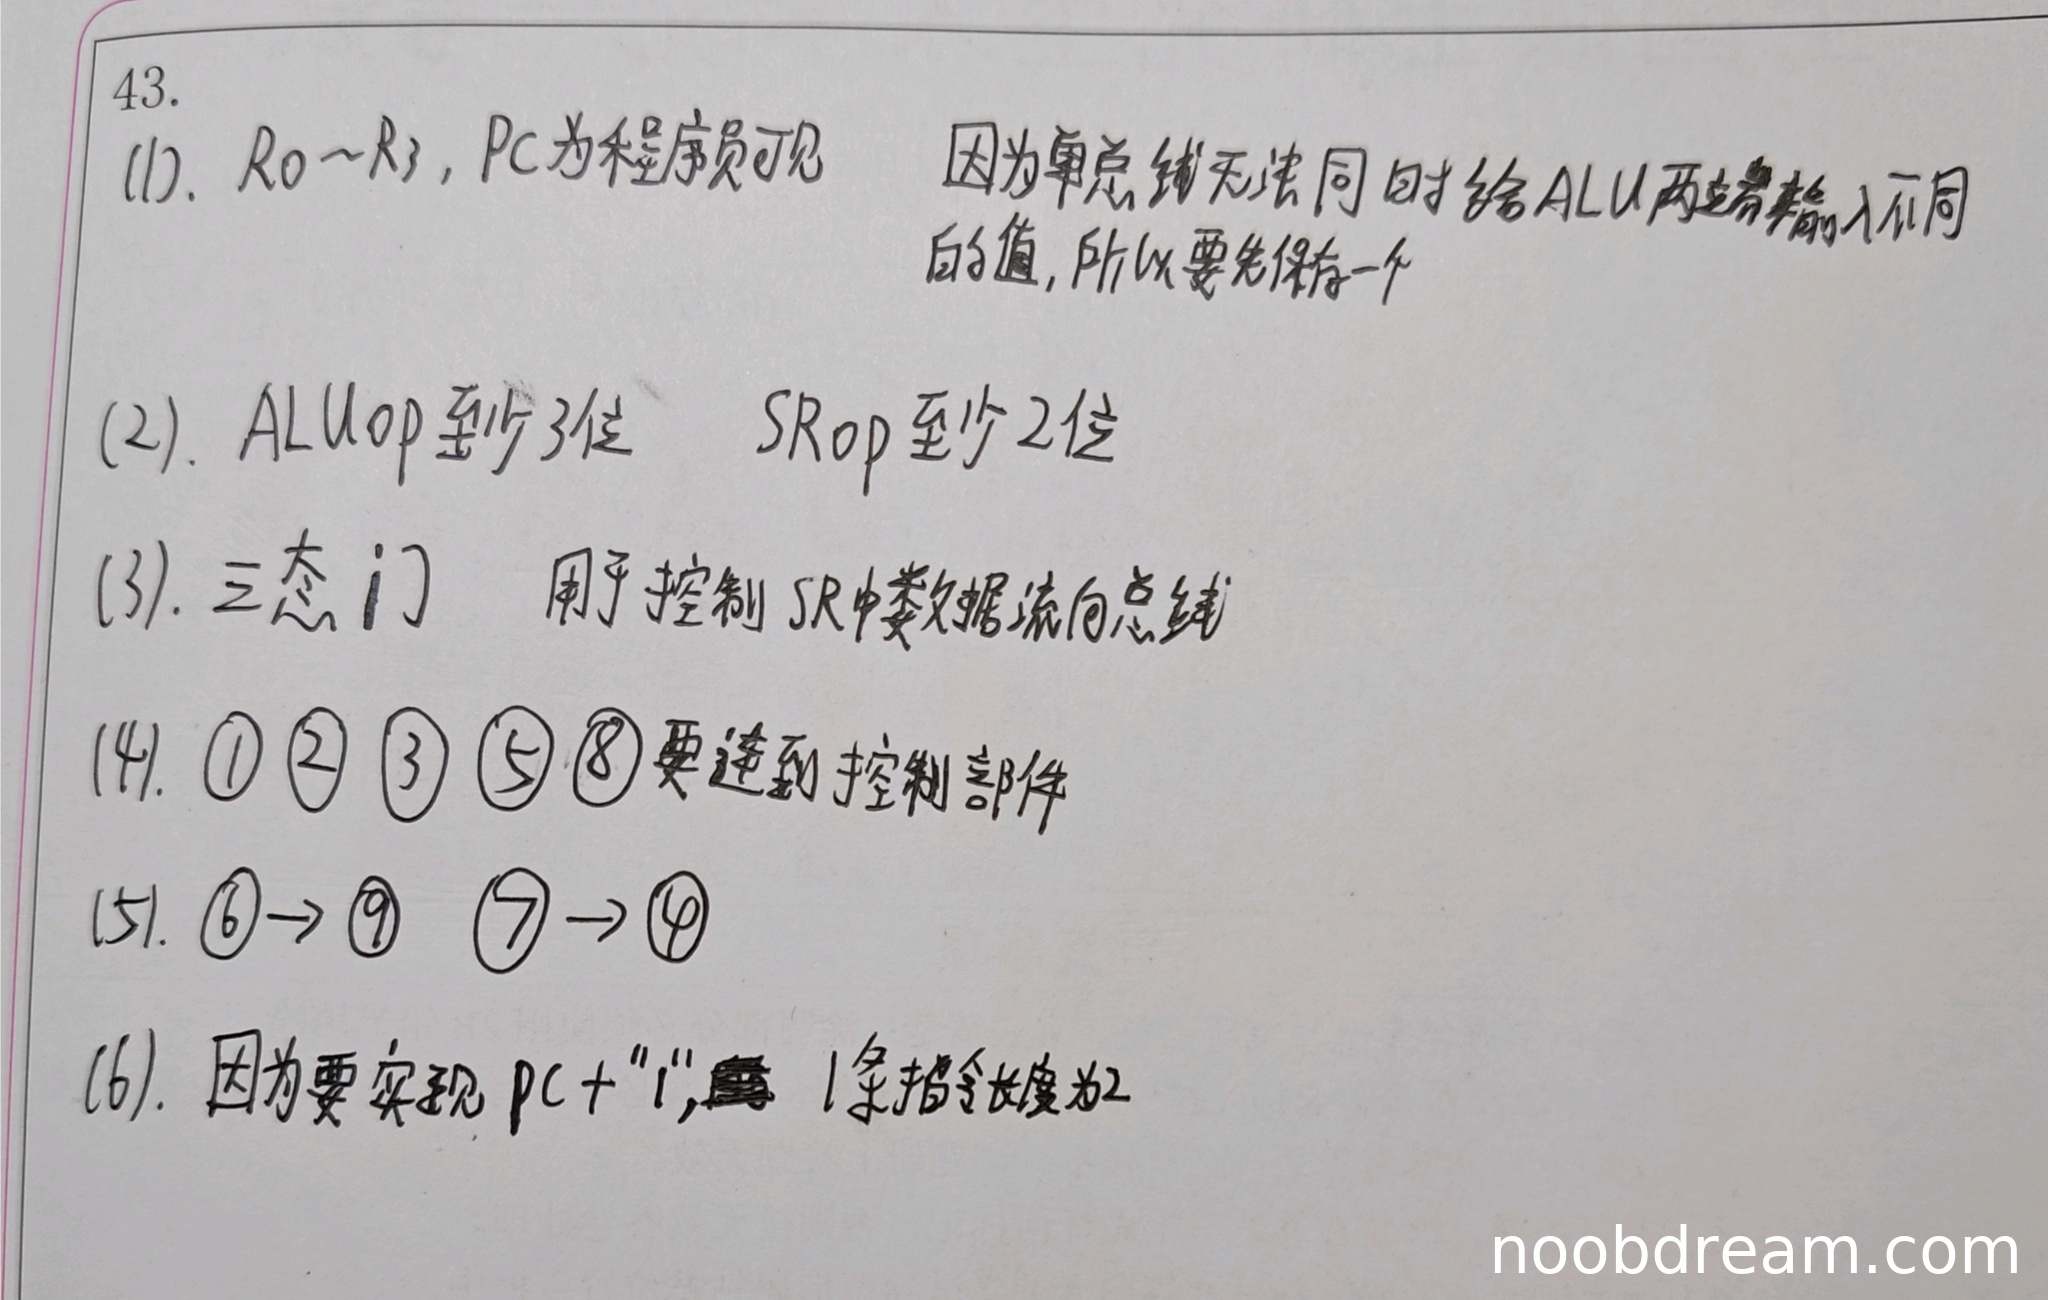 43.
(1). R0~R3, PC为程序员可见 因为单总线无法同时给ALU两端输入不同
的值, 所以要先保存一个
(2). ALUop至少3位 SRop至少2位
(3). 三态门 用于控制SR中数据流向总线
(4). ① ② ③ ⑤ ⑧ 要连到控制部件
(5). ⑥→⑨ ⑦→④
(6). 因为要实现 PC+"1", 1条指令长度为2
noobdream.com